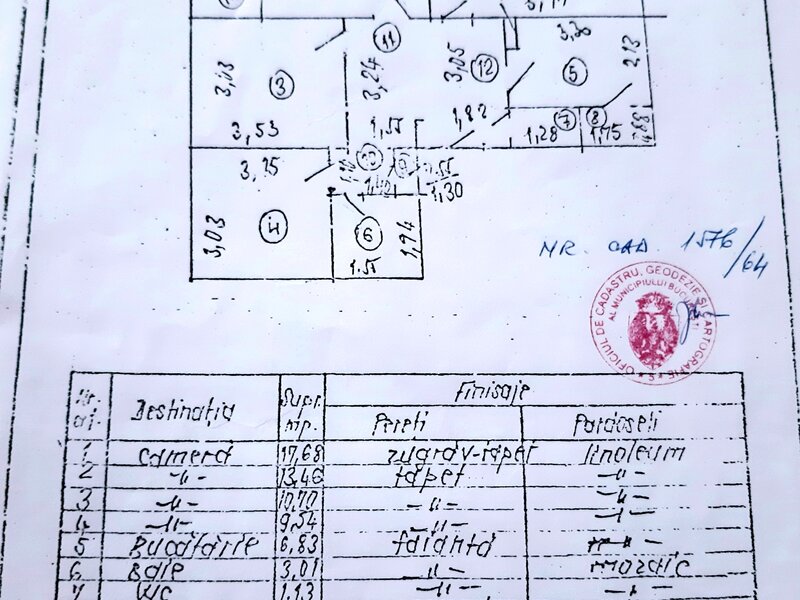 11
3,24
3,05
12
3,30
2,13
5
3,03
3
3,53
1,55
1,82
7
8
1,28
1,75
3,25
10
9
1,55
1,40
1,30
3,03
4
6
1,94
1.55
NR. CAD. 1576/64
OFICIUL DE CADASTRU, GEODEZIE ȘI CARTOGRAFIE
AL MUNICIPIULUI BUCUREȘTI
Nr. Destinația Supr. mp. Finisaje
Pereți Pardoseli
1 Camera 17,68 zugrav-tapet linoleum
2 -"- 13,46 tapet -"-
3 -"- 10,70 -"- -"-
4 -"- 9,54 -"- -"-
5 Bucătărie 6,83 faianță -"-
6 Baie 3,01 -"- mozaic
7 WC 1.13 -"- -"-